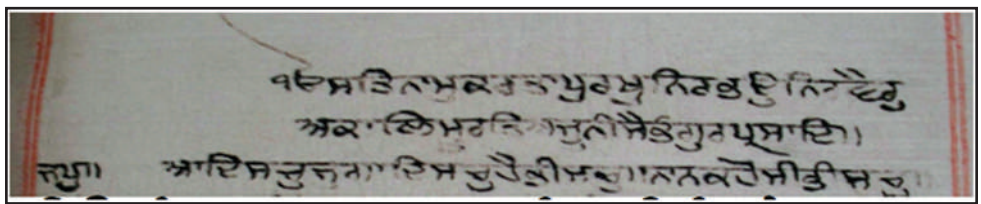 ੧ੴਸਤਿਨਾਮੁਕਰਤਾਪੁਰਖੁਨਿਰਭਉਨਿਰਵੈਰੁ
ਅਕਾਲਮੂਰਤਿਅਜੂਨੀਸੈਭੰਗੁਰਪ੍ਰਸਾਦਿ॥
ਜਪੁ॥ ਆਦਿਸਚੁਜੁਗਾਦਿਸਚੁਹੈਭੀਸਚੁ॥ਨਾਨਕਹੋਸੀਭੀਸਚੁ